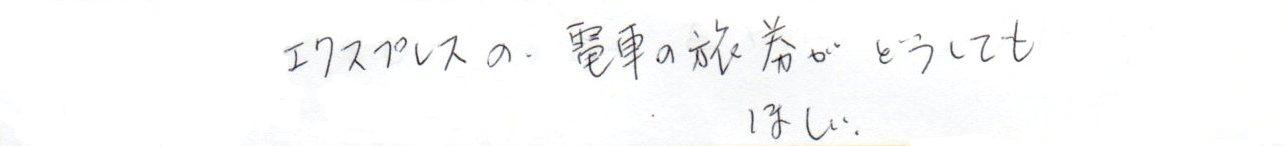 エクスプレスの、電車の旅券がどうしても
ほしい。